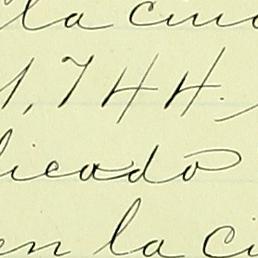 la ciu
1,744.
licado
en la ci